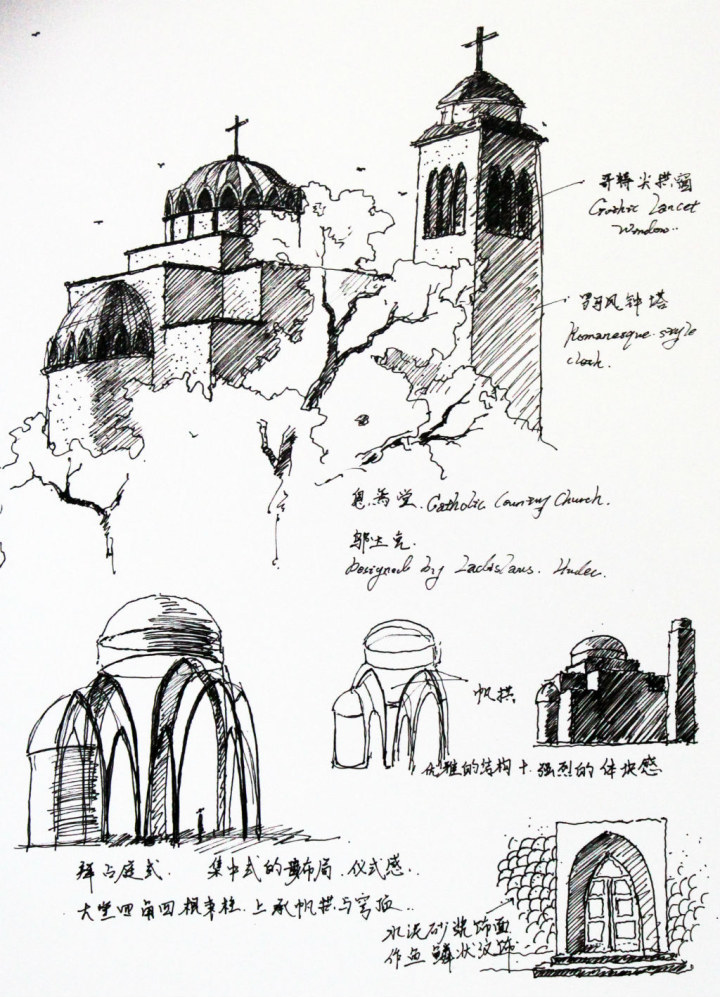 哥特尖拱窗
Gothic Lancet
Window..
罗马风钟塔
Romanesque style
clock.
息焉堂. Catholic Country Church.
邬达克.
Designed by Ladislaus. Hudec.
帆拱
优雅的结构 + 强烈的体块感
拜占庭式. 集中式的布局. 仪式感..
大堂四角四根束柱. 上承帆拱与穹顶..
水泥砂浆饰面
作鱼鳞状纹饰